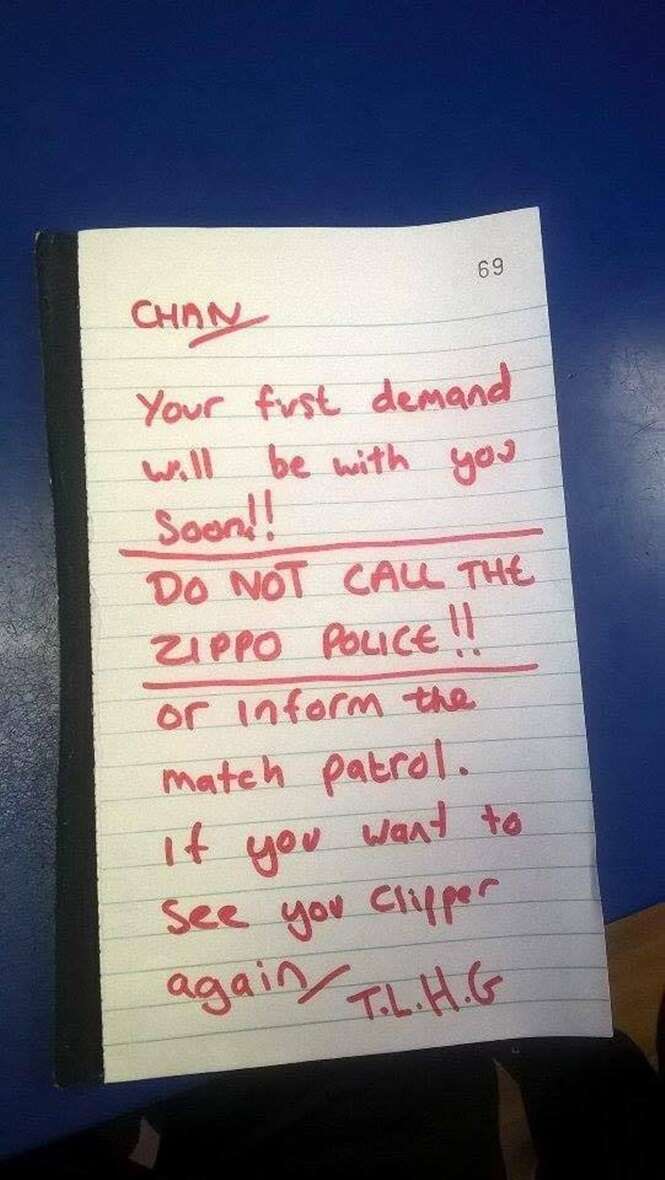 69
CHAN
Your first demand
will be with you
Soon!!
DO NOT CALL THE
ZIPPO POLICE!!
or inform the
match patrol.
If you want to
See you Clipper
again
T.L.H.G